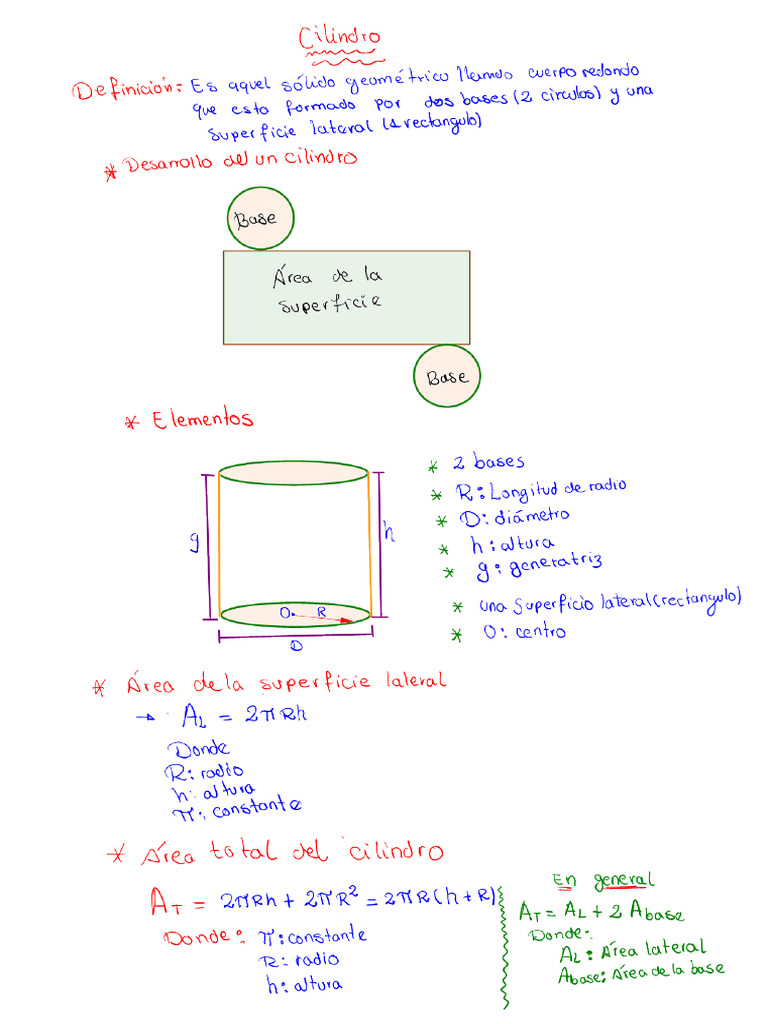 Cilindro
Definición: Es aquel sólido geométrico llamado cuerpo redondo
que esta formado por dos bases (2 circulos) y una
superficie lateral (1 rectangulo)
* Desarrollo del un cilindro
Base
Área de la
superficie
Base
* Elementos
* 2 bases
* R: Longitud de radio
* D: diámetro
* h: altura
* g: generatriz
* una superficio lateral (rectangulo)
* O: centro
g
h
O
R
D
* Área de la superficie lateral
→ A_L = 2πRh
Donde
R: radio
h: altura
π: constante
* Área total del cilindro
A_T = 2πRh + 2πR² = 2πR(h + R)
Donde: π: constante
R: radio
h: altura
En general
A_T = A_L + 2 A_base
Donde:
A_L: Área lateral
A_base: Área de la base